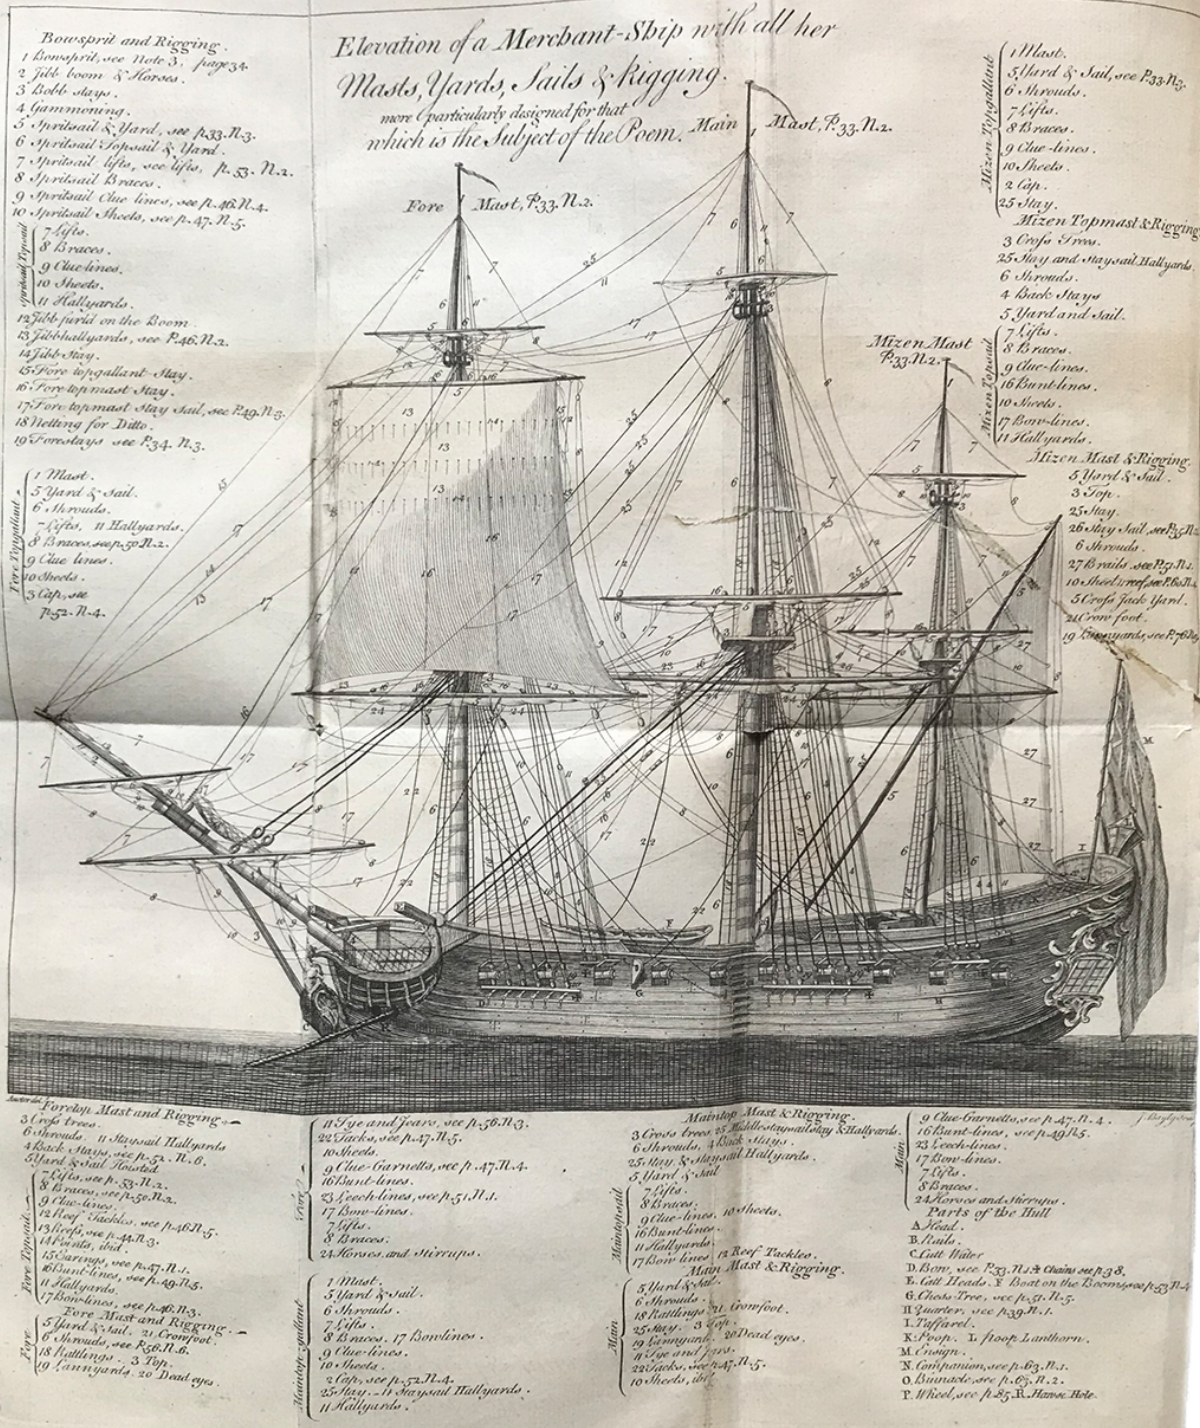 Elevation of a Merchant-Ship with all her
Masts, Yards, Sails & Rigging.
more particularly designed for that
which is the Subject of the Poem.
Bowsprit and Rigging.
1 Bowsprit, see Note 3, page 34.
2 Jibb boom & Horses.
3 Bobb stays.
4 Gammoning.
5 Spritsail & Yard, see p.33. N.3.
6 Spritsail Topsail & Yard.
7 Spritsail lifts, see lifts, p. 53. N.2.
8 Spritsail Braces.
9 Spritsail Clue lines, see p.46. N.4.
10 Spritsail Sheets, see p.47. N.5.
Spritsail Topsail
7 Lifts.
8 Braces.
9 Clue-lines.
10 Sheets.
11 Hallyards.
12 Jibb furld on the Boom.
13 Jibb hallyards, see P.46. N.2.
14 Jibb Stay.
15 Fore topgallant-Stay.
16 Fore-topmast Stay.
17 Fore-topmast Stay Sail, see P.49. N.3.
18 Netting for Ditto.
19 Forestays see P.34. N.3.
Fore Topgallant
1 Mast.
5 Yard & Sail.
6 Shrouds.
7 Lifts, 11 Hallyards.
8 Braces, see p.50. N.2.
9 Clue lines.
10 Sheets.
3 Cap, see
p.52. N.4.
Fore Mast, P.33. N.2.
Main Mast, P.33. N.2.
Mizen Mast
P.33. N.2.
Mizen Topgallant
1 Mast.
5 Yard & Sail, see P.33. N.3.
6 Shrouds.
7 Lifts.
8 Braces.
9 Clue-lines.
10 Sheets.
2 Cap.
25 Stay.
Mizen Topmast & Rigging
3 Cross Trees.
25 Stay and staysail Hallyards
6 Shrouds.
4 Back Stays
5 Yard and Sail.
Mizen Topsail
7 Lifts.
8 Braces.
9 Clue-lines.
16 Bunt-lines.
10 Sheets.
17 Bow-lines.
11 Hallyards.
Mizen Mast & Rigging.
5 Yard & Sail.
3 Top.
25 Stay.
26 Stay Sail, see
6 Shrouds.
27 Brails, see P.51. N.1.
10 Sheet see P.60.
5 Cross Jack Yard.
21 Crow foot.
19 Lannyards, see P.76
Foretop Mast and Rigging
3 Cross trees.
6 Shrouds. 11 Staysail Hallyards
4 Back Stays, see p.52. N.6.
5 Yard & Sail Hoisted
Fore Topsail
7 Lifts, see p.53. N.2.
8 Braces, see p.50. N.2.
9 Clue-lines.
12 Reef Tackles, see p.46. N.5.
13 Reefs, see p.44. N.3.
14 Points, ibid.
15 Earings, see p.47. N.1.
16 Bunt-lines, see p.49. N.5.
11 Hallyards.
17 Bow-lines, see p.46. N.3.
Fore Mast and Rigging.
Fore
5 Yard & Sail. 21 Crowfoot.
6 Shrouds, see P.56. N.6.
18 Rattlings. 3 Top.
19 Lannyards. 20 Dead eyes.
Fore
11 Tye and Jears, see p.56. N.3.
22 Tacks, see p.47. N.5.
10 Sheets.
9 Clue-Garnetts, see p.47. N.4.
16 Bunt-lines.
23 Leech-lines, see p.51. N.1.
17 Bow-lines.
7 Lifts.
8 Braces.
24 Horses and Stirrups.
Maintop-gallant
1 Mast.
5 Yard & Sail.
6 Shrouds.
7 Lifts.
8 Braces. 17 Bowlines.
9 Clue-lines.
10 Sheets.
2 Cap, see p.52. N.4.
25 Stay. 11 Staysail Hallyards.
11 Hallyards.
Maintop Mast & Rigging.
3 Cross trees, 25 Middle staysail stay & Hallyards.
6 Shrouds, 4 Back Stays.
25 Stay, & Staysail Hallyards.
5 Yard & Sail
Maintopsail
7 Lifts.
8 Braces.
9 Clue-lines. 10 Sheets.
16 Bunt-lines.
11 Hallyards.
17 Bow lines 12 Reef Tackles.
Main Mast & Rigging.
Main
5 Yard & Sail.
6 Shrouds.
18 Rattlings 21 Crowfoot.
25 Stay. 3 Top.
19 Lannyards 20 Dead eyes.
11 Tye and Jears.
22 Tacks, see p.47. N.5.
10 Sheets, ibid
Main
9 Clue-Garnetts, see p.47. N.4.
16 Bunt-lines, see p.49. N.5.
23 Leech-lines.
17 Bow-lines.
7 Lifts.
8 Braces.
24 Horses and Stirrups.
Parts of the Hull
A Head.
B. Rails.
C. Cutt Water
D. Bow, see P.33. N.1. & Chains see p.38.
E. Catt Heads. F Boat on the Booms, see p.53. N.4
G. Chess Tree, see p.51. N.5.
H Quarter, see p.39. N.1.
I. Taffarel.
K. Poop. L poop Lanthorn.
M Ensign.
N. Companion, see p.63. N.1.
O. Binnacle, see p.63. N.2.
P. Wheel, see p.85. R. Hawse Hole.